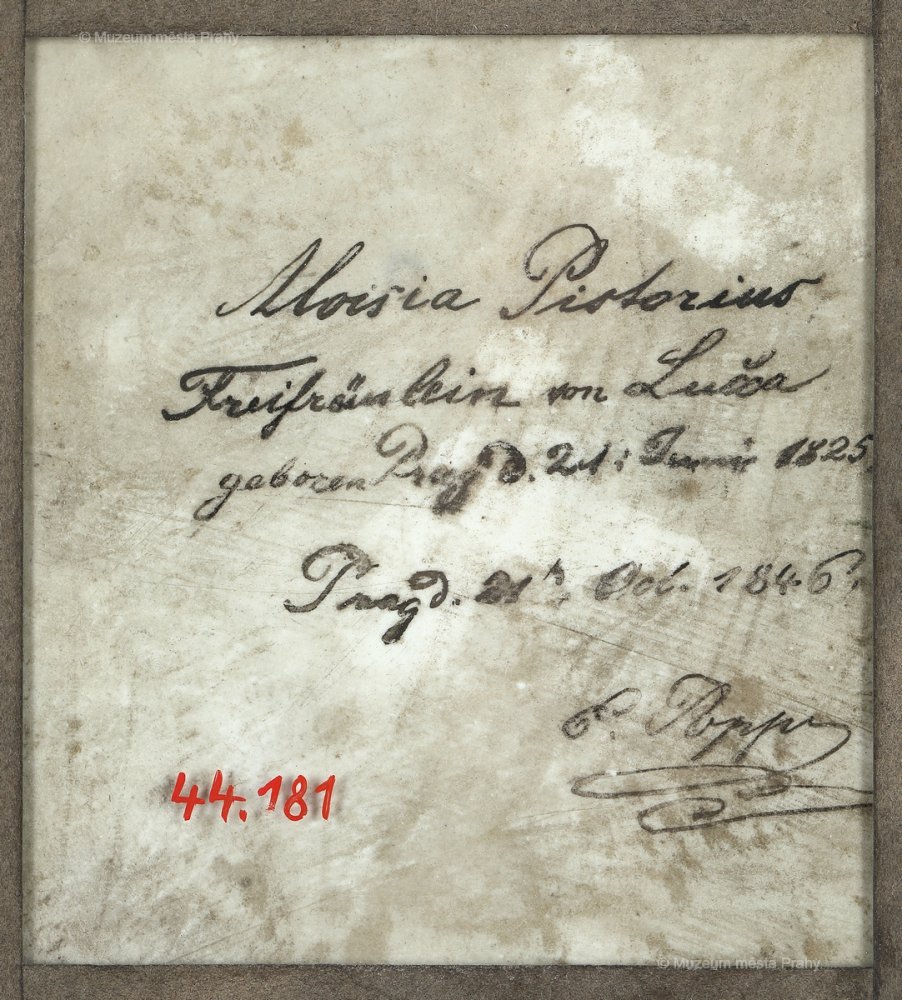 © Muzeum města Prahy
Aloisia Pistorius
Freifräulein von Lučza
geboren Prag d. 21: Juni 1825.
Prag d. 21t. Oct. 1846.
Popp
44.181
© Muzeum města Prahy